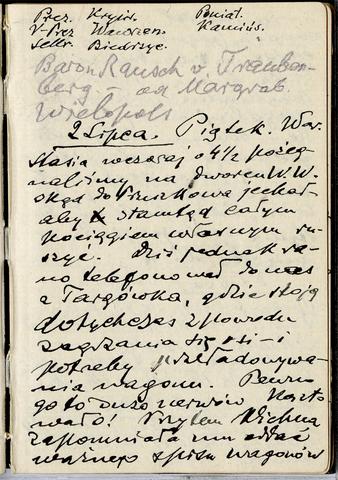 Prez. Kryń. Poniat.
V-Prez Wawrzen. Kamińs.
Sekr. Biedrzyc.
Baron Rausch v Trauben-
berg - od Margrab.
Wielopols
2 Lipca. Piątek. War.
Stasia wczoraj o 4½ pożeg
naliśmy na dworcu W.W.
skąd do Pruszkowa jechał
aby stamtąd całym
pociągiem własnym ru-
szyć. Dziś jednak ra-
no telefonował do nas
z Targówka, gdzie stoją
dotychczas z powodu
zagrzania się osi - i
potrzeby przeładowywa-
nia wagonu. Pewno
go to dużo nerwów koszto
wało! Przytem Michna
zapomniała mu oddać
ważnego spisu wagonów